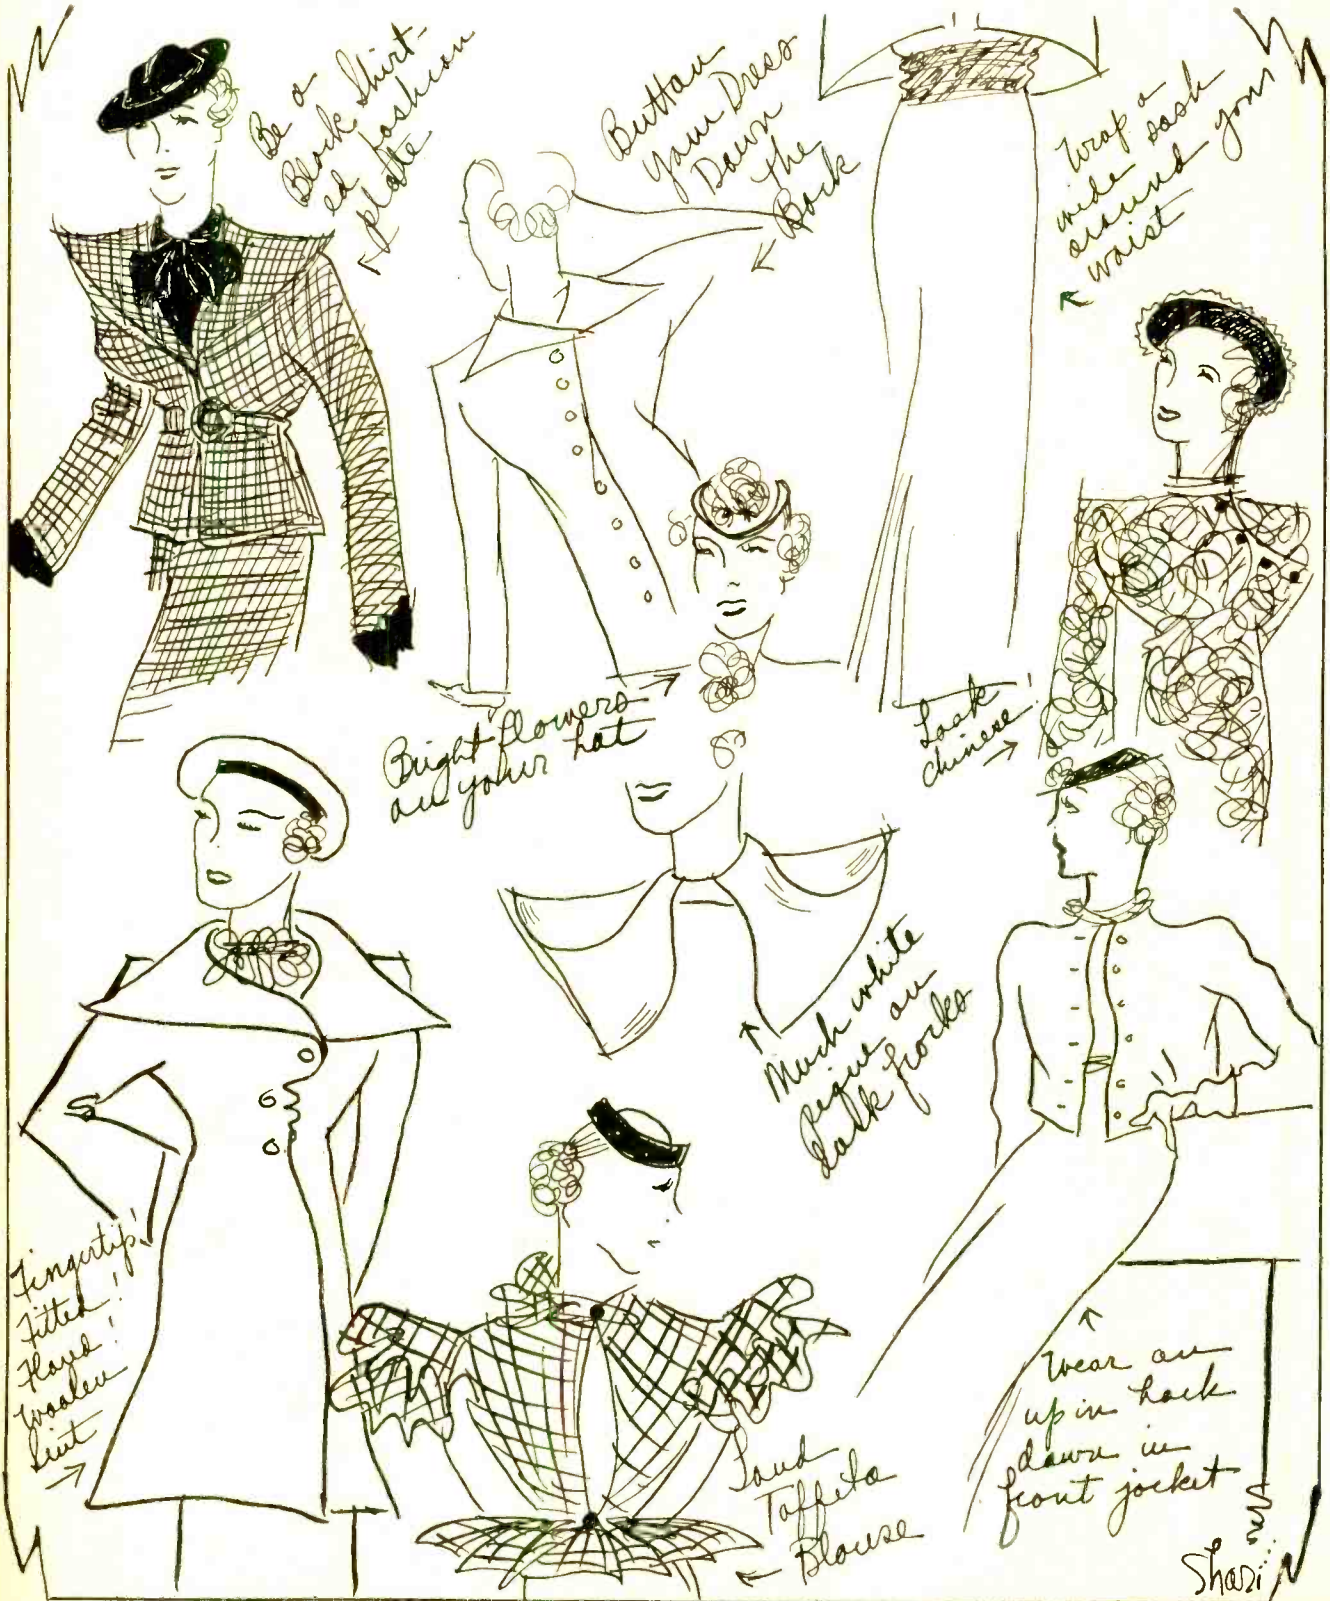 Be a
Black Shirt-
ed fashion
plate
Button
your Dress
Down
the
Back
Wrap a
wide sash
around your
waist
Bright flowers
on your hat
Look
chinese!
Much white
pique on
dark frocks
Fingertip!
Fitted!
Woolen
Suit
Loud
Taffeta
Blouse
Wear an
up in back
down in
front jacket
Shari